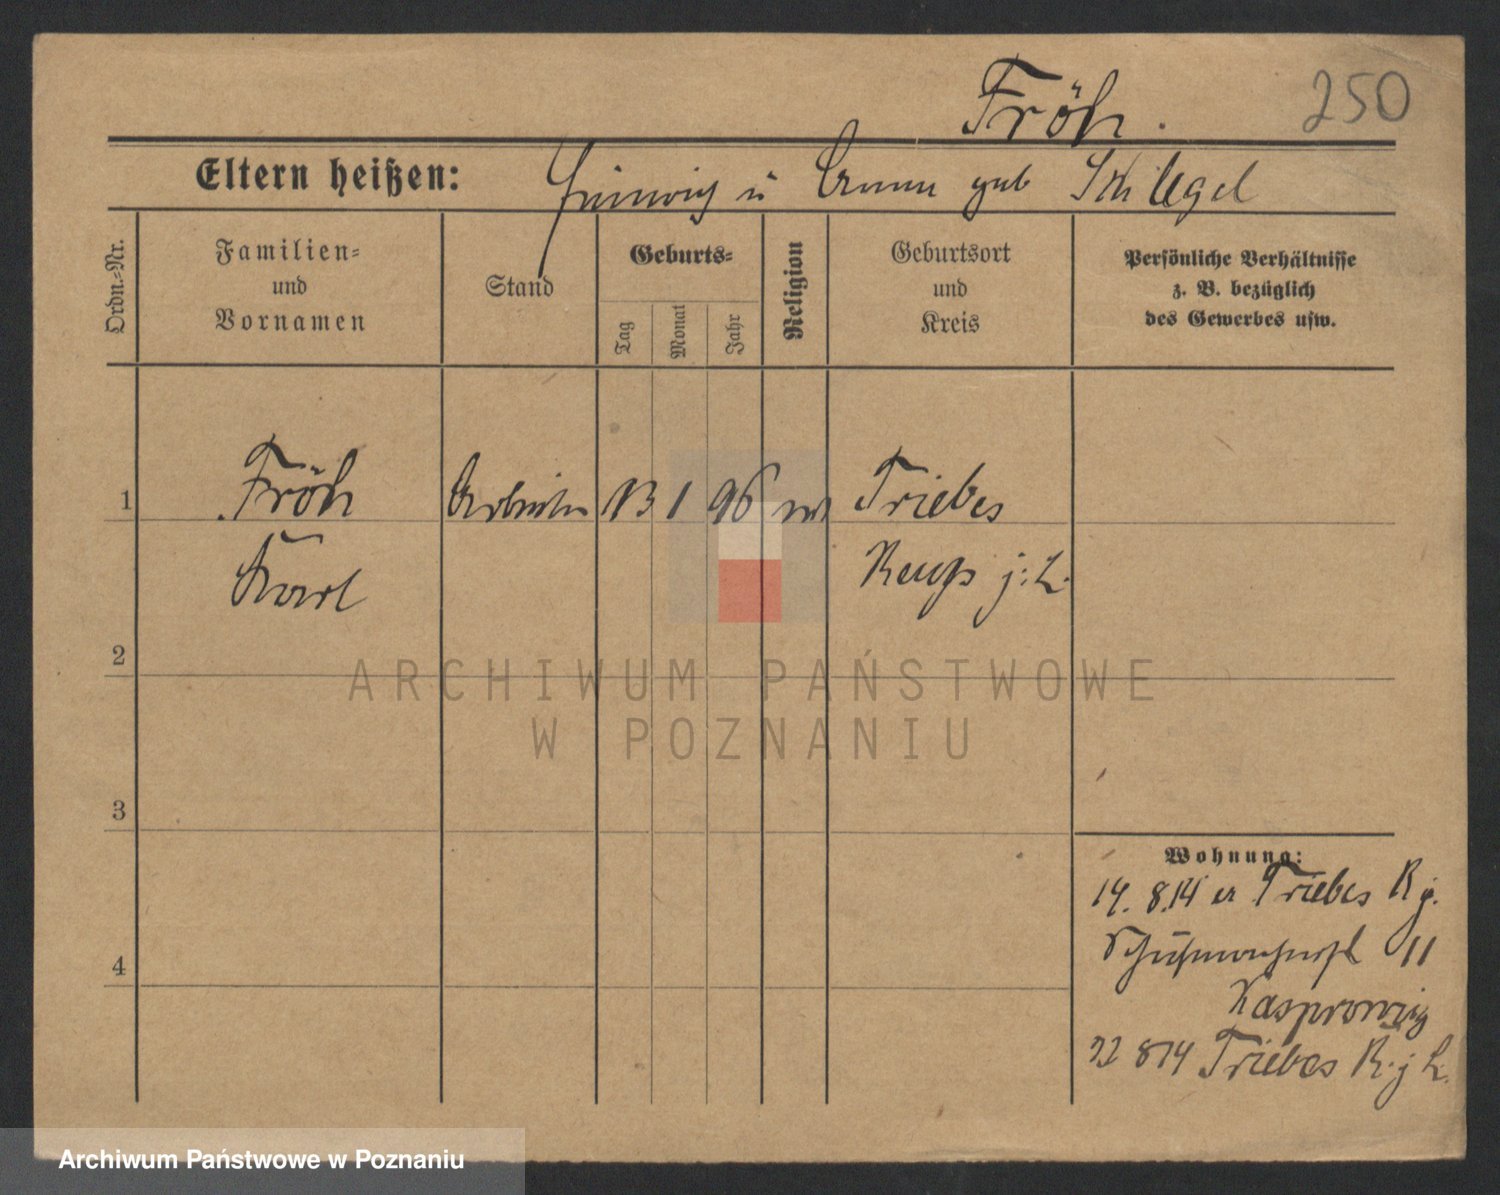 Fröh.
250
Eltern heißen: Heinrich u Anna geb Schlegel
Ordn.-Nr.
Familien-
und
Vornamen
Stand
Geburts-
Tag
Monat
Jahr
Religion
Geburtsort
und
Kreis
Persönliche Verhältnisse
z. B. bezüglich
des Gewerbes usw.
1 Fröh Arbeiter 13 1 96 Triebes
Karl Reuß j: L.
2
ARCHIWUM PAŃSTWOWE
W POZNANIU
3
Wohnung:
14. 8.14 Triebes R j.
11
4
Kasprowicz
22 8 14 Triebes R. j L.
Archiwum Państwowe w Poznaniu